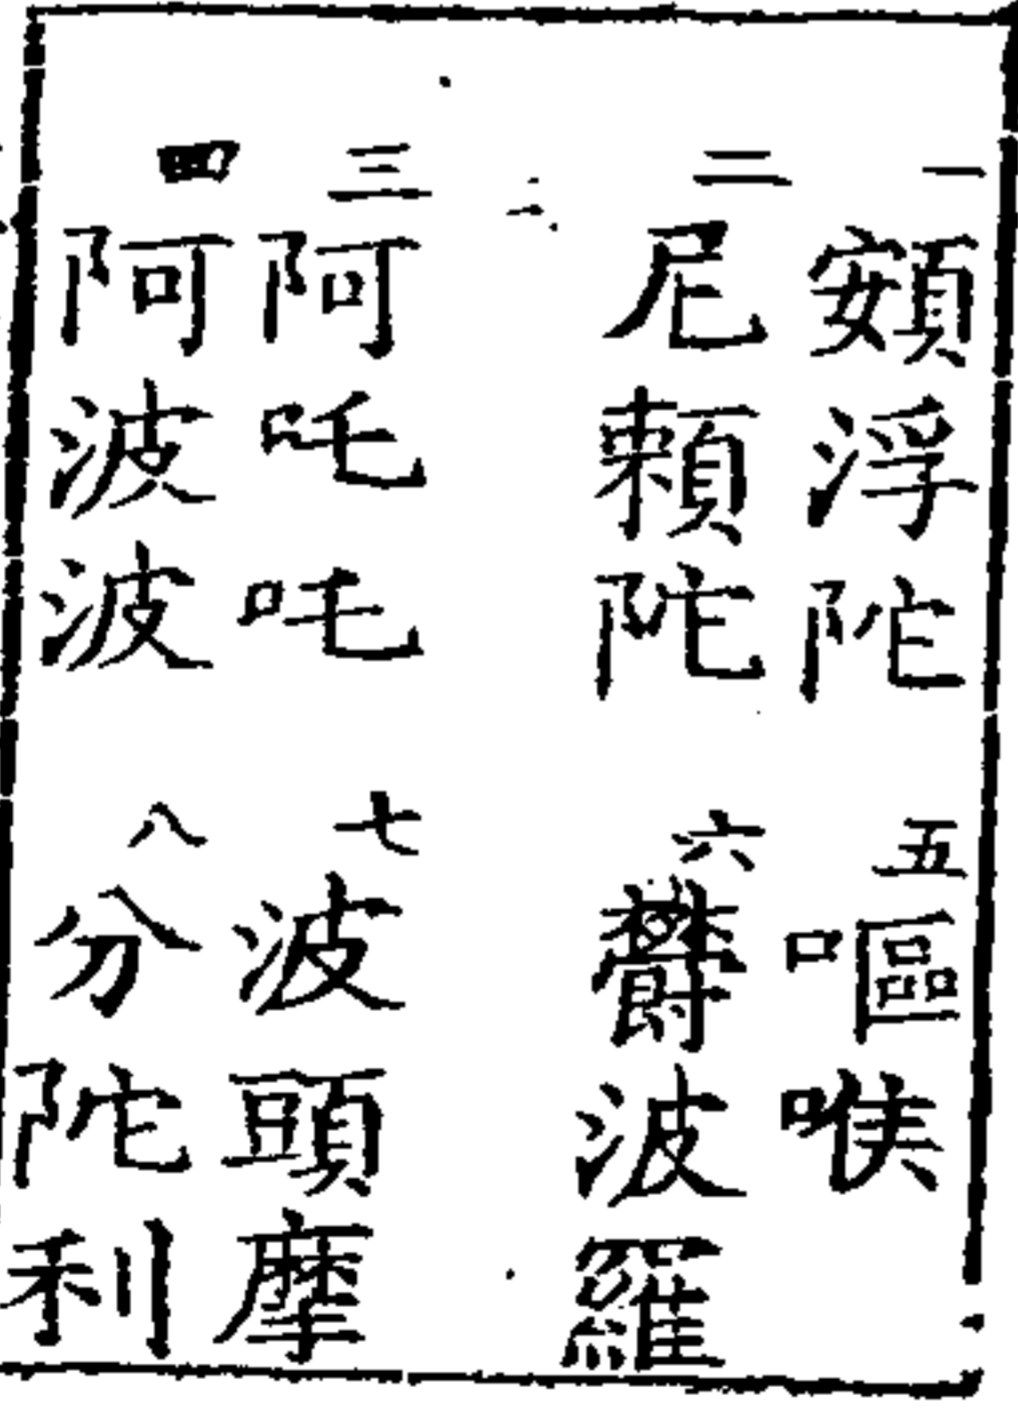 一
頞浮陀
二
尼頼陀
三
阿吒吒
四
阿波波
五
嘔喉
六
欝波羅
七
波頭摩
八
分陀利